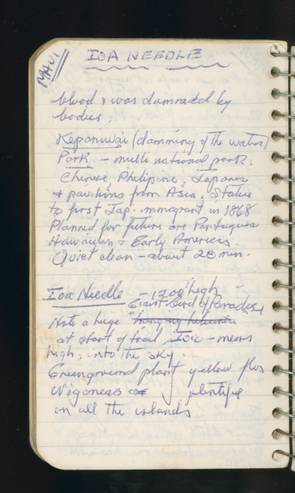 MAUI
IOA NEEDLE
blood & was dammed by
bodies.
Kepaniwai (damming of the waters)
Park - multi national park.
Chinese, Philipino, Japanese
+ pavilions from Asia. Statue
to first Jap. immigrant in 1868
Planned for future are Portuguese
Hawaiian & Early Americas.
Quiet clean - about 20 min.
Ioa Needle - 1200' high
Giant Bird of Paradise
Note a huge
at start of trail Ioa - means
high, into the sky.
Green ground plant yellow flws
plentiful
on all the islands